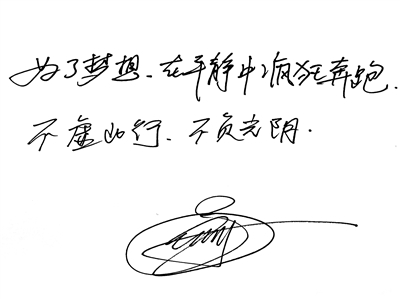 为了梦想、在平静中疯狂奔跑.
不虚此行、不负光阴.